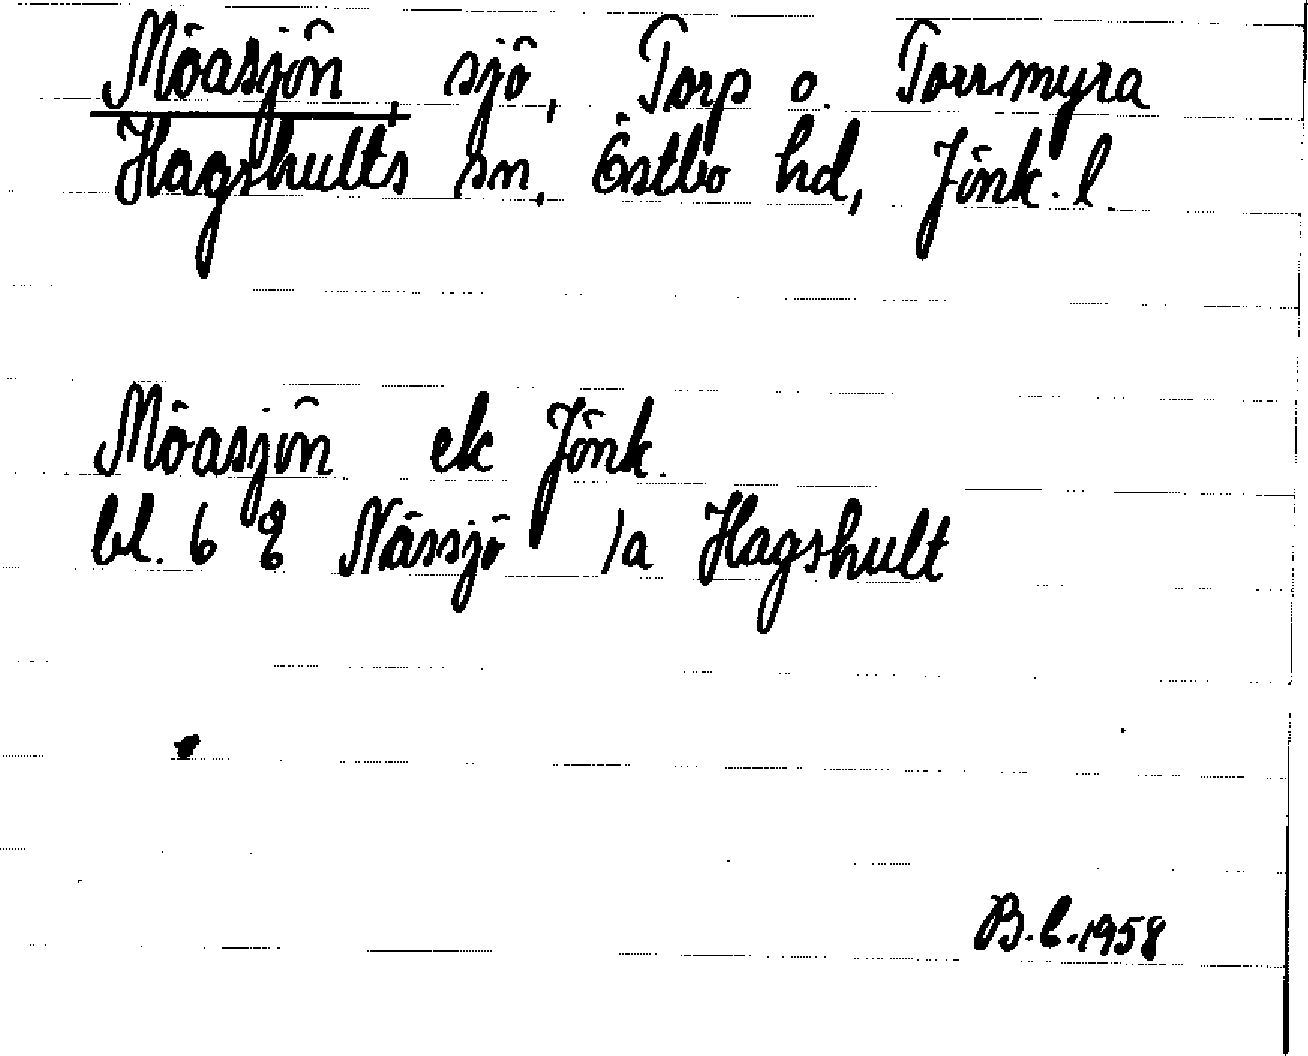 Möasjön, sjö, Torp o. Torrmyra
Hagshults sn, Östbo hd, Jönk. l.
Möasjön ek Jönk.
bl. 6 E Nässjö 1a Hagshult
B.E. 1958